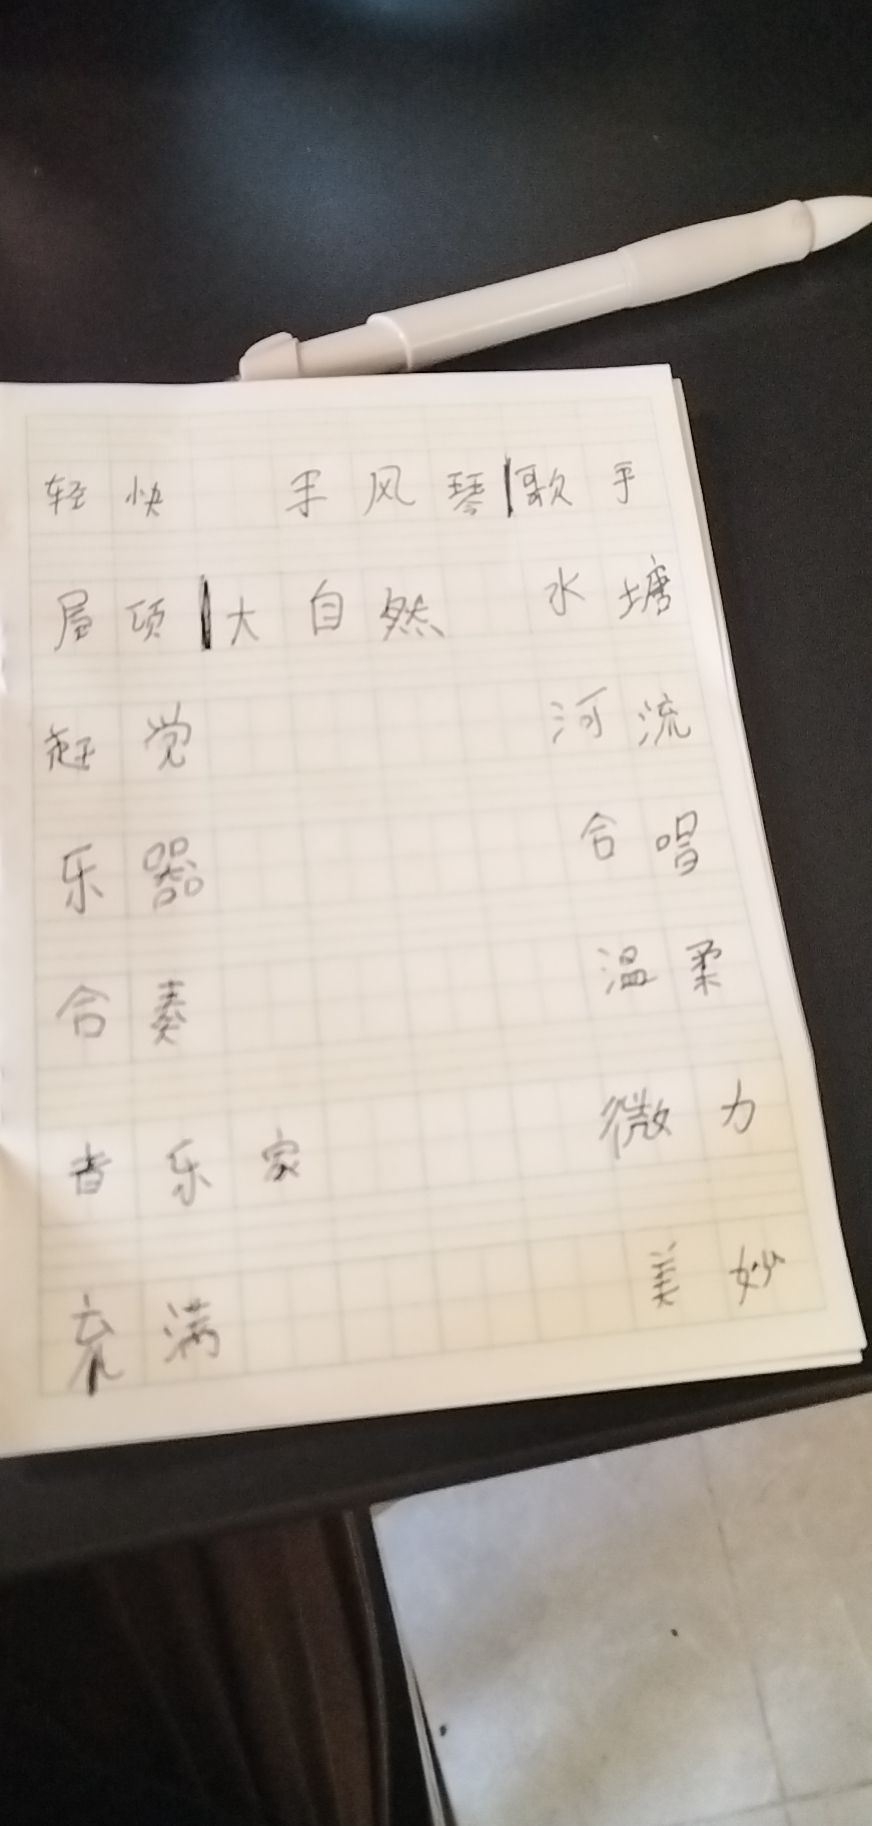 轻快 手风琴 歌手
大自然 水塘
觉 河流
乐器 合唱
合奏 温柔
音乐家 微力
充满 美妙